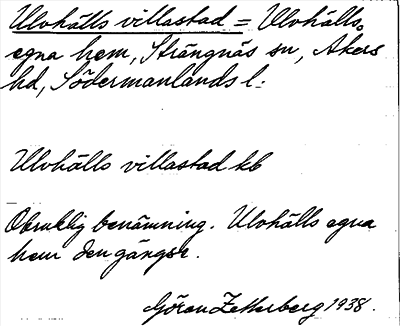 Ulvhälls villastad = Ulvhälls
egna hem, Strängnäs sn, Åkers
hd, Södermanlands l:
Ulvhälls villastad kb
Obruklig benämning. Ulvhälls egna
hem den gängse.
Göran Zetterberg 1938.